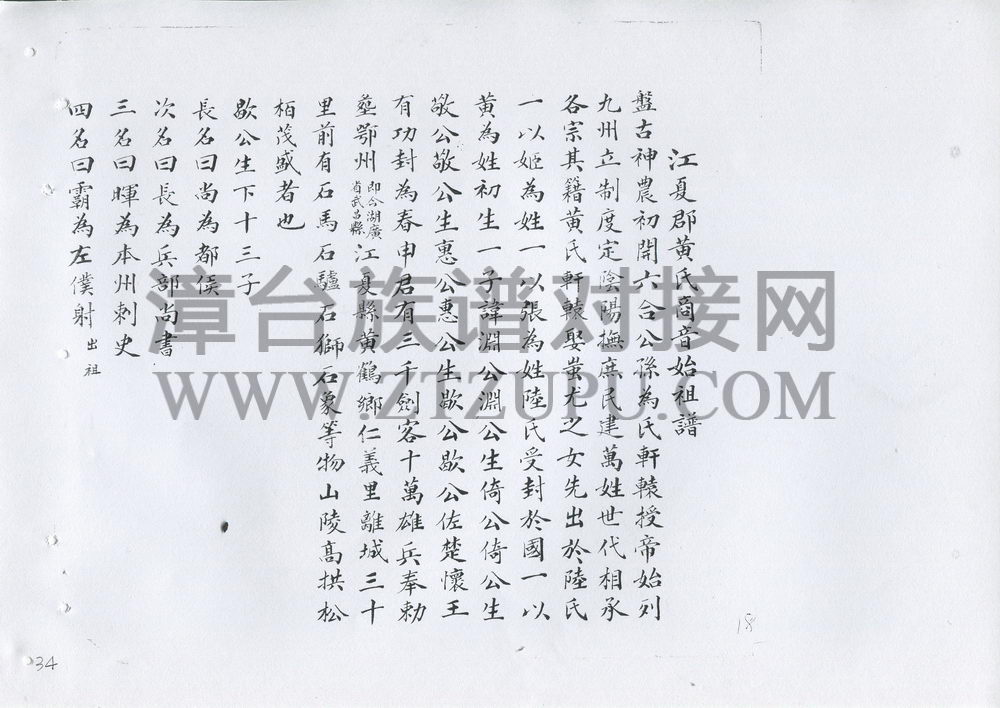 江夏郡黃氏商音始祖譜
盤古神農初開六合公孫為氏軒轅授帝始列
九州立制度定陰陽撫庶民建萬姓世代相承
各宗其籍黃氏軒轅娶蚩尤之女先出於陸氏
一以姬為姓一以張為姓陸氏受封於國一以
黃為姓初生一子諱淵公淵公生倚公倚公生
敬公敬公生惠公惠公生歇公歇公佐楚懷王
有功封為春申君有三千劍客十萬雄兵奉勅
塟鄂州即今湖廣省武昌縣江夏縣黃鶴鄉仁義里離城三十
里前有石馬石驢石獅石象等物山陵高拱松
栢茂盛者也
歇公生下十三子
長名曰尚為都侯
次名曰長為兵部尚書
三名曰暉為本州刺史
四名曰霸為左僕射 出祖
18
34
漳台族谱对接网
WWW.ZTZUPU.COM